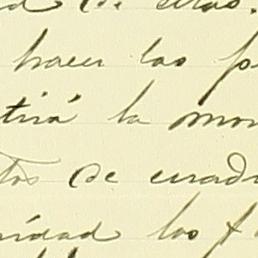 de ellas.
hacer las p
tirá la mon
tos de cuadr
nidad las f